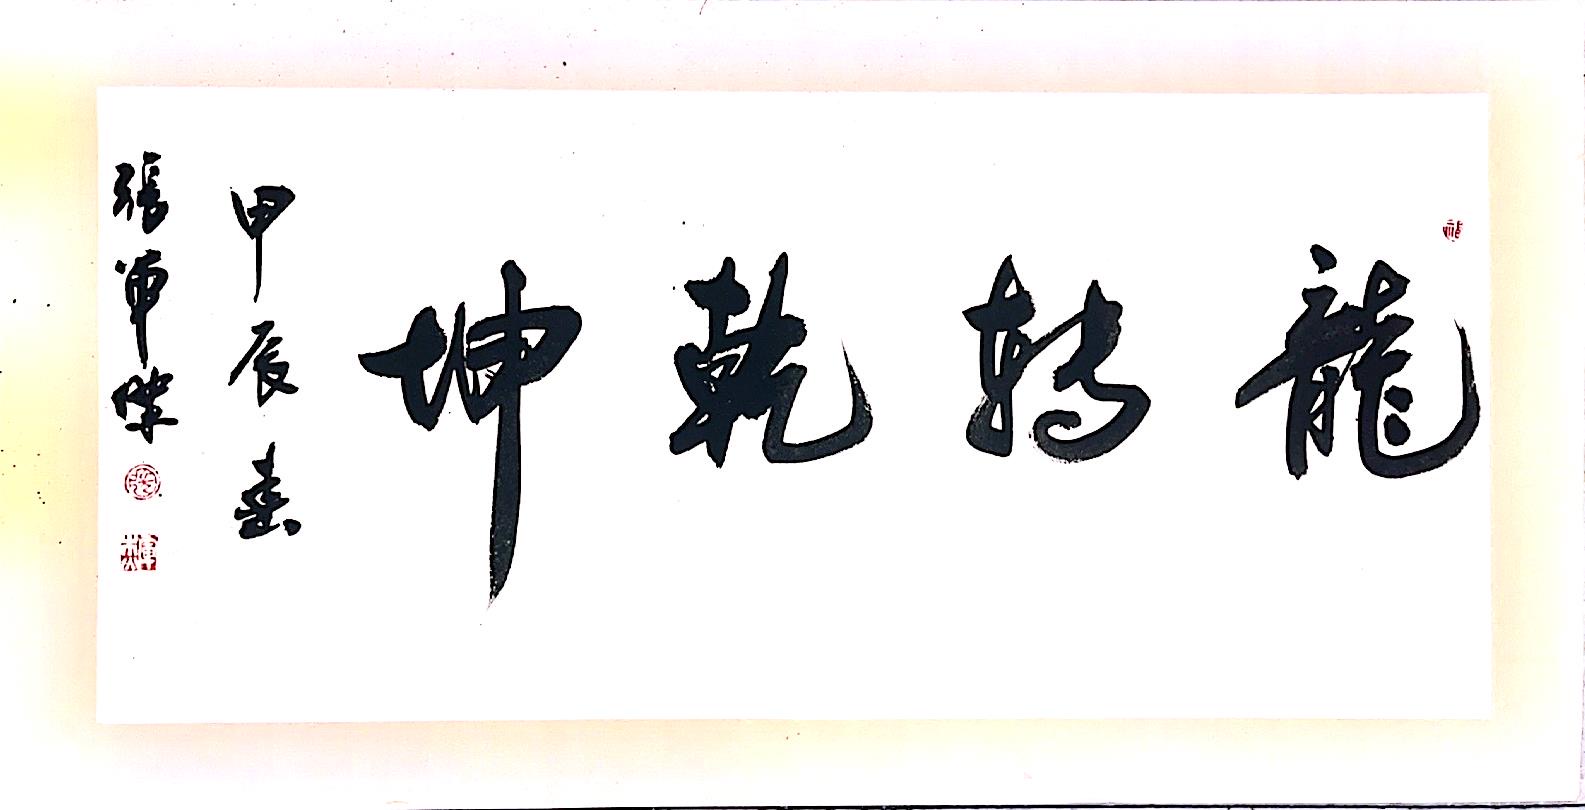 龍轉乾坤
甲辰春
張軍